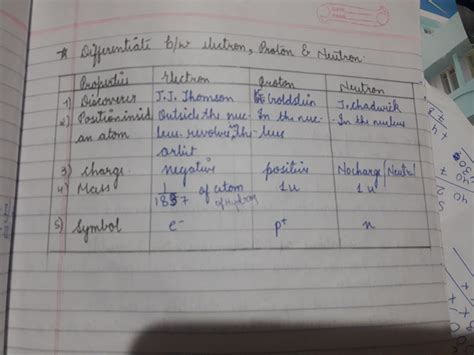 * Differentiate b/w electron, Proton & Neutron.
Properties Electron Proton Neutron
1) Discoverer J.J. Thomson E. Goldstein J. Chadwick
2) Position insid Outside the nuc- In the nuc- In the nucleus
an atom leus revolve, The leus
orbit
3) Charge negative positive No charge/Neutral
4) Mass 1/1837 of atom 1u 1u
of Hydrog
5) Symbol e⁻ p⁺ n